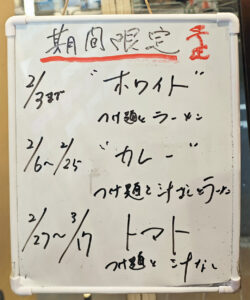 期間限定
2/3まで "ホワイト"
つけ麺とラーメン
2/6〜2/25 "カレー"
つけ麺と汁なしとラーメン
2/27〜3/17 トマト
つけ麺と汁なし